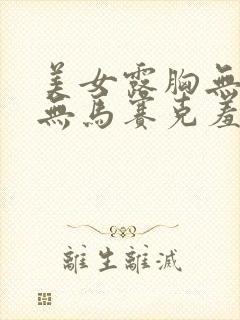 美女露胸無
無馬賽克羞
離生離滅